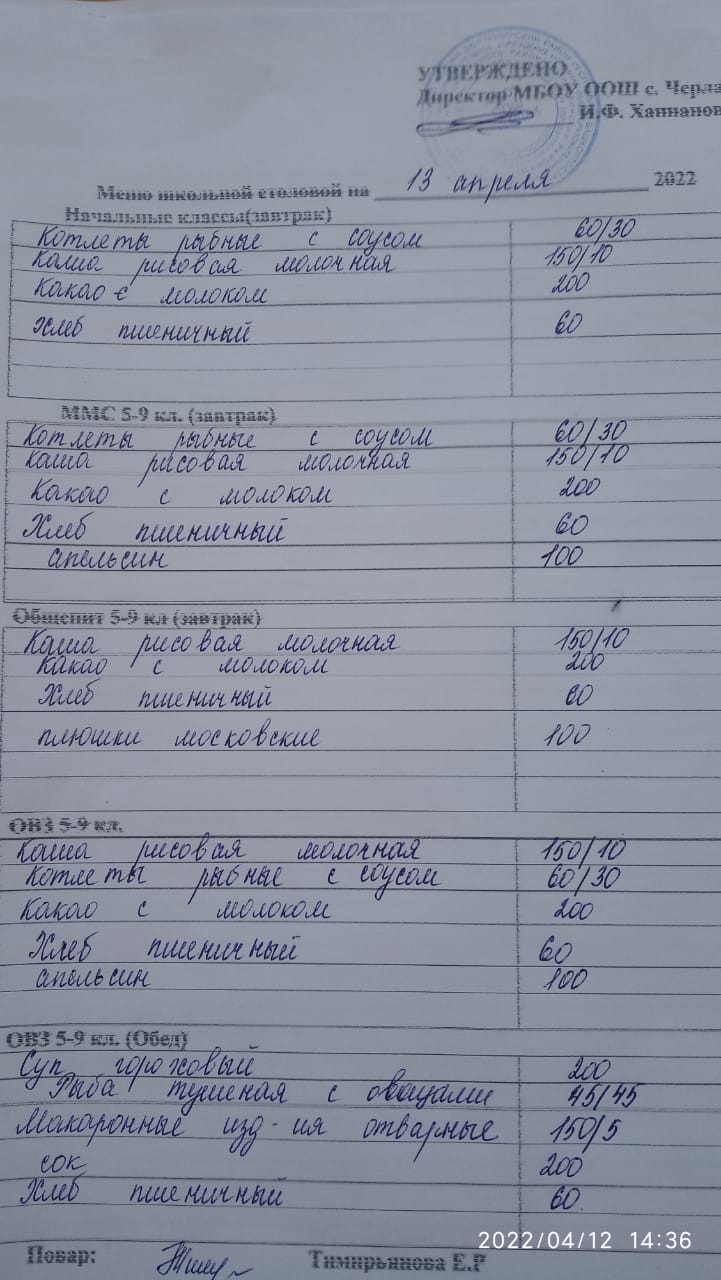 УТВЕРЖДЕНО
Директор МБОУ ООШ с. Черла
И.Ф. Ханнанов
Меню школьной столовой на 13 апреля 2022
Начальные классы(завтрак)
Котлеты рыбные с соусом 60/30
Каша рисовая молочная 150/10
Какао с молоком 200
Хлеб пшеничный 60
ММС 5-9 кл. (завтрак)
Котлеты рыбные с соусом 60/30
Каша рисовая молочная 150/10
Какао с молоком 200
Хлеб пшеничный 60
апельсин 100
Общепит 5-9 кл (завтрак)
Каша рисовая молочная 150/10
Какао с молоком 200
Хлеб пшеничный 60
плюшки московские 100
ОВЗ 5-9 кл.
Каша рисовая молочная 150/10
Котлеты рыбные с соусом 60/30
Какао с молоком 200
Хлеб пшеничный 60
апельсин 100
ОВЗ 5-9 кл. (Обед)
Суп гороховый 200
Рыба тушеная с овощами 45/45
Макаронные изд-ия отварные 150/5
сок 200
Хлеб пшеничный 60
2022/04/12 14:36
Повар: Тимирьянова Е.Р